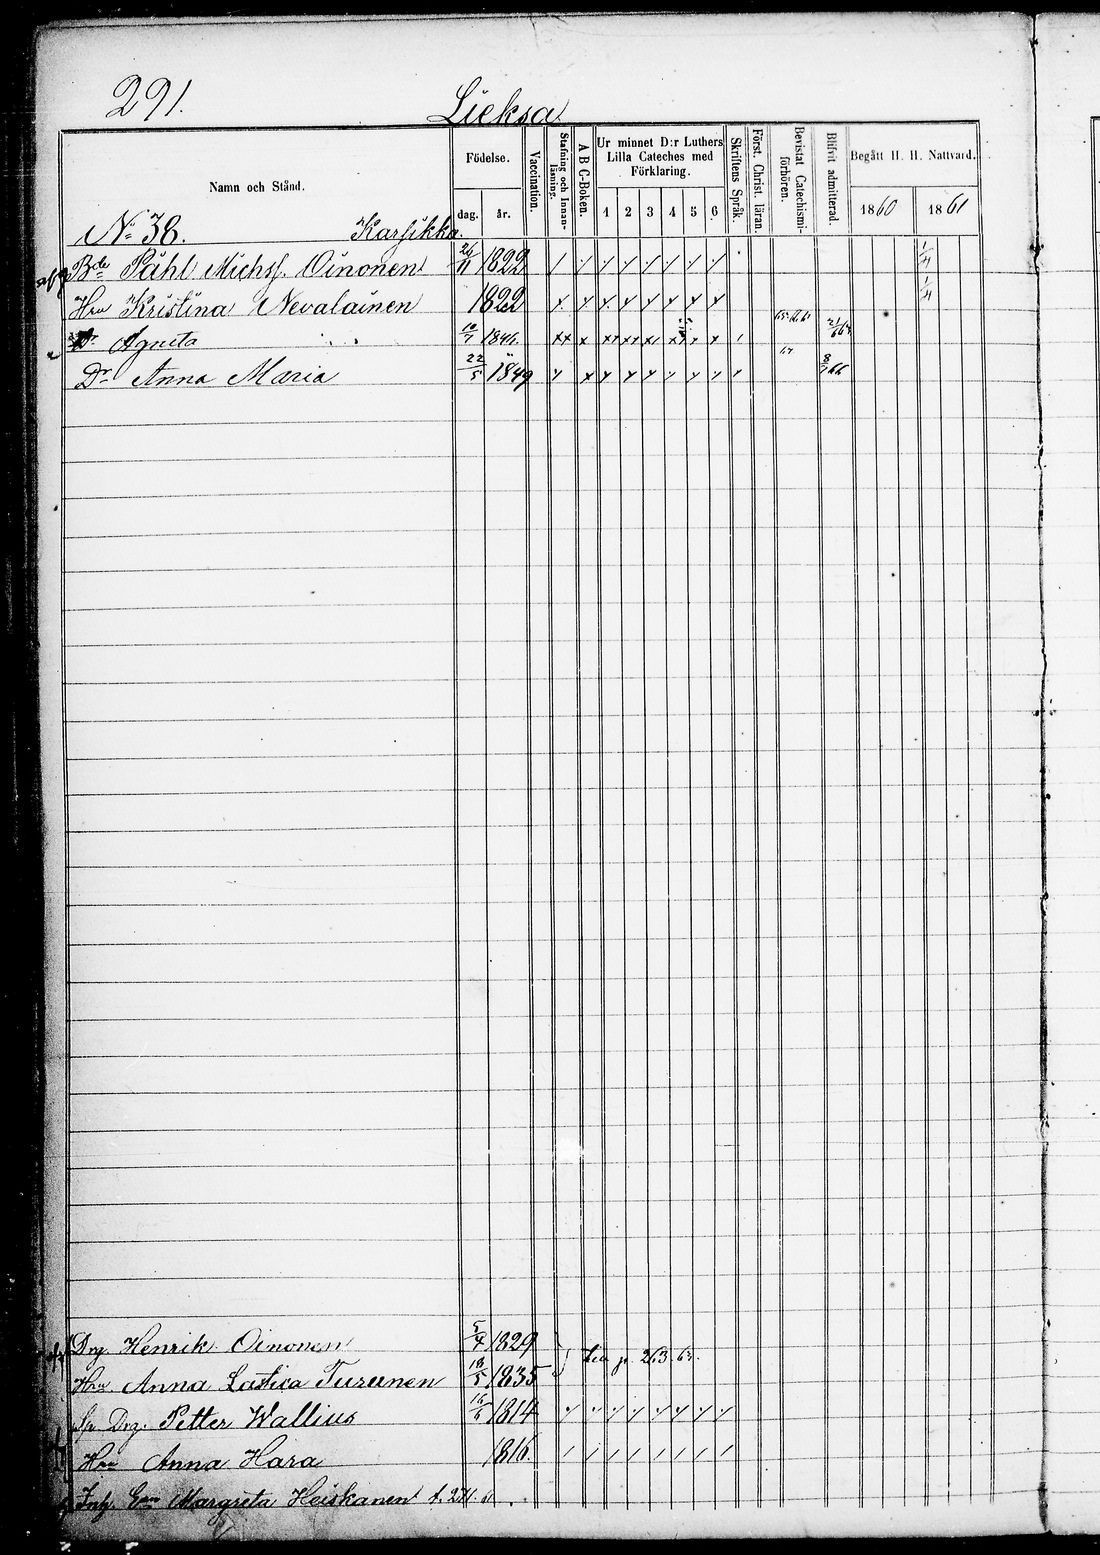 291.
Lieksa
Namn och Stånd.
Födelse.
dag.
år.
Vaccination.
Stafning och Innanläsning.
A B C-Boken.
Ur minnet D:r Luthers
Lilla Cateches med
Förklaring.
1 2 3 4 5 6
Skriftens Språk.
Först. Christ. läran.
Bevistat Catechismiförhören.
Blifvit admitterad.
Begått H. H. Nattvard.
1860 1861
No 38. Karsikka.
Bde Påhl Michss. Oinonen 26/11 1822 1/4
Hru Kristina Nevalainen 1822 1/4
Dr Agneta 10/7 1846
Dr Anna Maria 22/5 1849 8/7 66
Drg. Henrik Oinonen 5/4 1829
Hru Anna Lastica Turunen 18/5 1835 p. 263
Sp Drg. Petter Wallius 16/6 1814
Hru Anna Hara 1816
Inh. Margreta Heiskanen